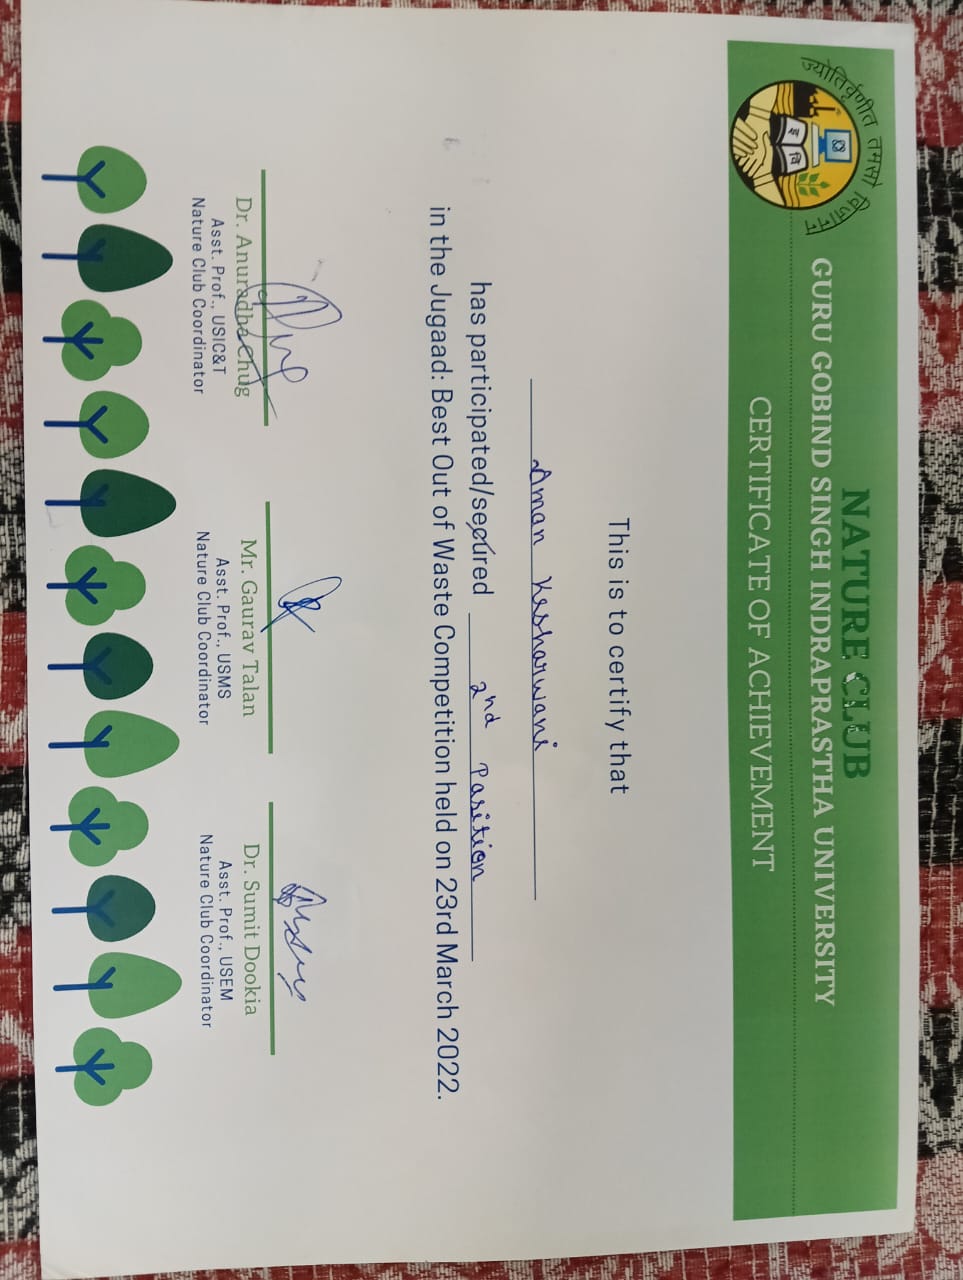 ज्योतिर्वृणीत तमसो विजानन
NATURE CLUB
GURU GOBIND SINGH INDRAPRASTHA UNIVERSITY
CERTIFICATE OF ACHIEVEMENT
This is to certify that
Aman Kesharwani
has participated/secured 2nd Pasition
in the Jugaad: Best Out of Waste Competition held on 23rd March 2022.
Dr. Anuradha Chug
Asst. Prof., USIC&T
Nature Club Coordinator
Mr. Gaurav Talan
Asst. Prof., USMS
Nature Club Coordinator
Dr. Sumit Dookia
Asst. Prof., USEM
Nature Club Coordinator